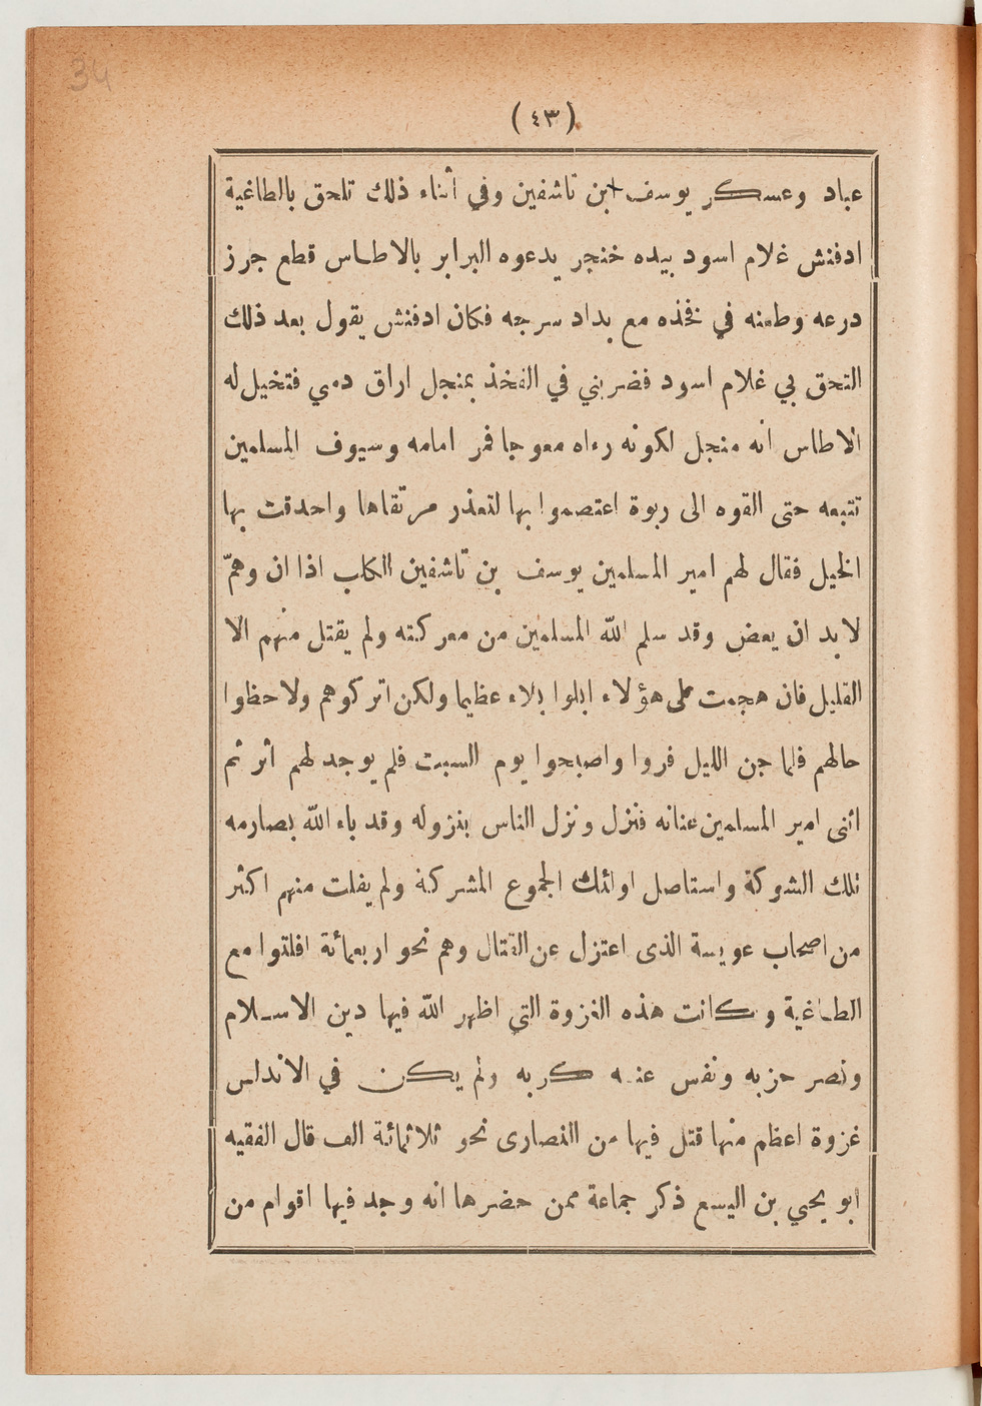 34
(٤٣)
عباد وعسكر يوسف ابن تاشفين وفي أثناء ذلك تلحق بالطاغية
ادفنش غلام اسود بيده خنجر يدعوه البرابر بالاطاس قطع جرز
درعه وطعنه في فخذه مع بداد سرجه فكان ادفنش يقول بعد ذلك
التحق بي غلام اسود فضربني في الفخذ بمنجل اراق دمي فتخيل له
الاطاس انه منجل لكونه رءاه معوجا فمر امامه وسيوف المسلمين
تتبعه حتى القوه الى ربوة اعتصموا بها لتعذر مرتقاها واحدقت بها
الخيل فقال لهم امير المسلمين يوسف بن تاشفين الكاب اذا ان وهمّ
لا بد ان يعض وقد سلم الله المسلمين من معركته ولم يقتل منهم الا
القليل فان هجمت على هؤلاء ابلوا بلاء عظيما ولكن اتركوهم ولاحظوا
حالهم فلما جن الليل فروا واصبحوا يوم السبت فلم يوجد لهم اثر ثم
اثنى امير المسلمين عنانه فنزل ونزل الناس بنزوله وقد باء الله بصارمه
تلك الشوكة واستاصل اوائك الجموع المشركة ولم يفلت منهم اكثر
من اصحاب عويسة الذى اعتزل عن القتال وهم نحو اربعمائة افلتوا مع
الطاغية وكانت هذه الغزوة التي اظهر الله فيها دين الاسلام
ونصر حزبه ونفس عنه كربه ولم يكن في الاندلس
غزوة اعظم منها قتل فيها من النصارى نحو ثلاثمائة الف قال الفقيه
ابو يحيي بن اليسع ذكر جماعة ممن حضرها انه وجد فيها اقوام من